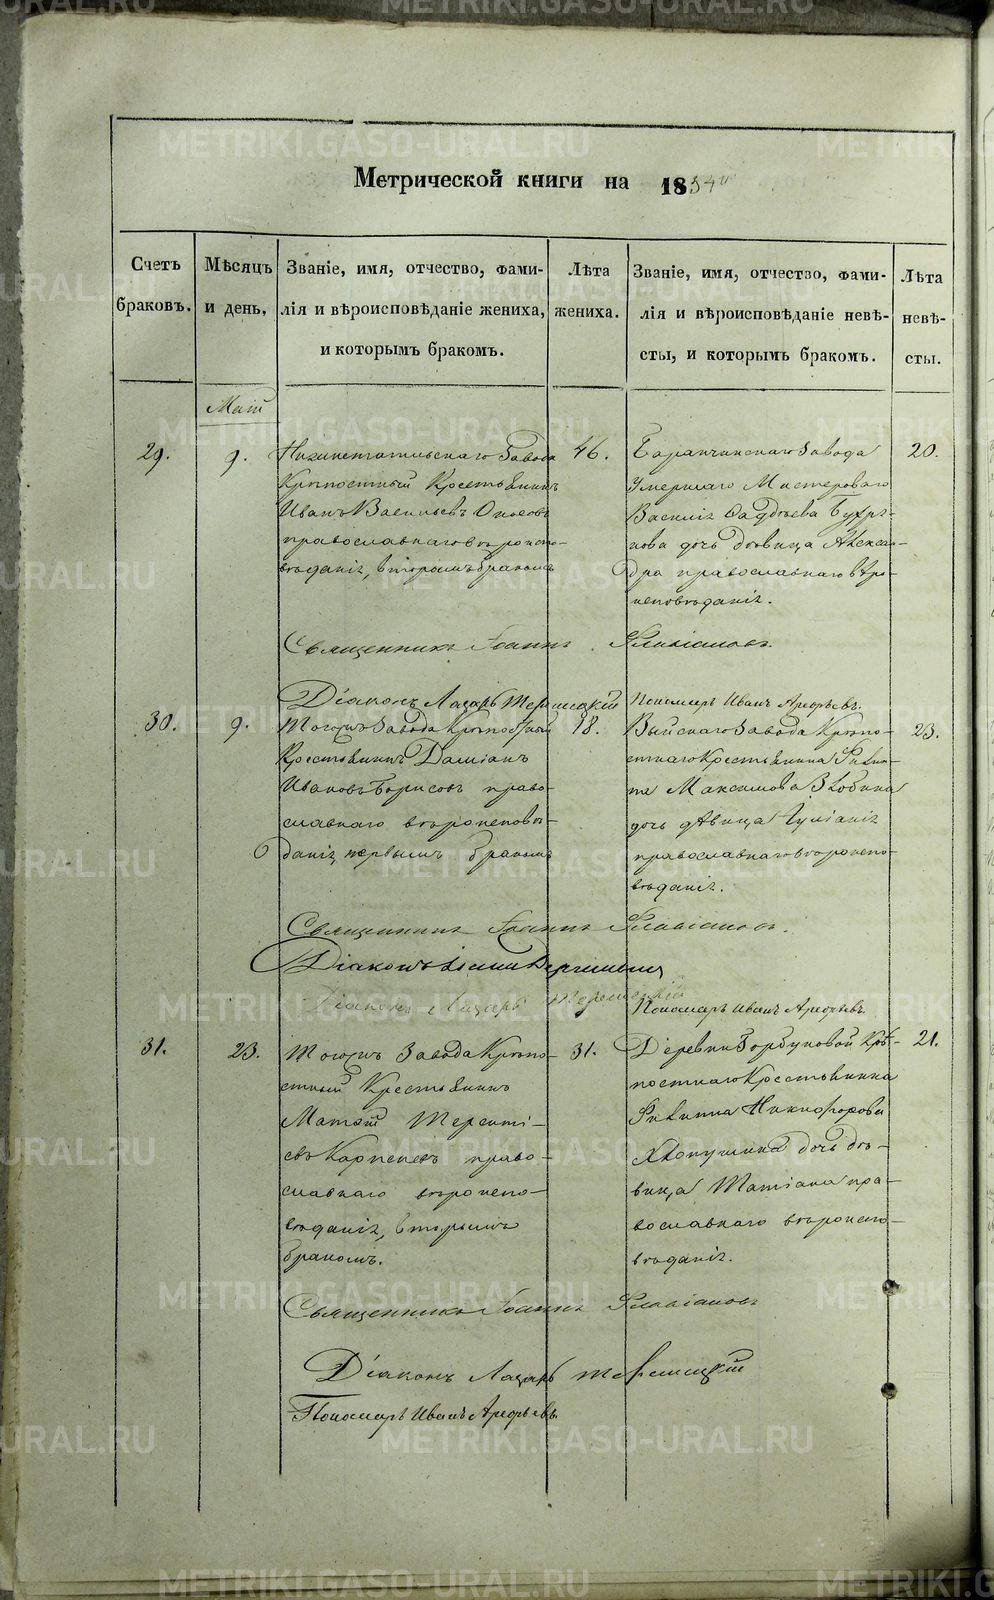 Метрической книги на 1854
Счетъ браковъ.
Мѣсяцъ и день.
Званіе, имя, отчество, фами-
лія и вѣроисповѣданіе жениха,
и которымъ бракомъ.
Лѣта жениха.
Званіе, имя, отчество, фами-
лія и вѣроисповѣданіе невѣ-
сты, и которымъ бракомъ.
Лѣта невѣ-
сты.
Май
29.
9.
Завода
Крѣпостный Крестьянинъ
Иванъ Васильевъ
православнаго вѣроиспо-
вѣданія, вторымъ бракомъ
46.
Баранчинскаго Завода
Умершаго Мастероваго
Василія
дочь дѣвица Алексан-
дра православнаго вѣро-
исповѣданія.
20.
Священникъ Іоаннъ Флавіановъ.
Діаконъ Лазарь
Пономарь Иванъ Арефьевъ.
30.
9.
Тогожъ Завода Крѣпостный
Крестьянинъ Даміанъ
Ивановъ Борисовъ право-
славнаго вѣроисповѣ-
данія, первымъ бракомъ
18.
Выйскаго Завода Крѣпо-
стнаго Крестьянина Филип-
па Максимова Злобина
дочь дѣвица Іуліанія
православнаго вѣроиспо-
вѣданія.
23.
Священникъ Іоаннъ Флавіановъ.
Діаконъ
Діаконъ Лазарь
Пономарь Иванъ Арефьевъ.
31.
23.
Тогожъ Завода Крѣпо-
стный Крестьянинъ
Матѳій Теренті-
евъ право-
славнаго вѣроиспо-
вѣданія, вторымъ
бракомъ.
31.
Деревни Горбуновой Крѣ-
постнаго Крестьянина
Филиппа Никифорова
Хлопушина дочь дѣ-
вица Татіана пра-
вославнаго вѣроиспо-
вѣданія.
21.
Священникъ Іоаннъ Флавіановъ
Діаконъ Лазарь
Пономарь Иванъ Арефьевъ
METRIKI.GASO-URAL.RU